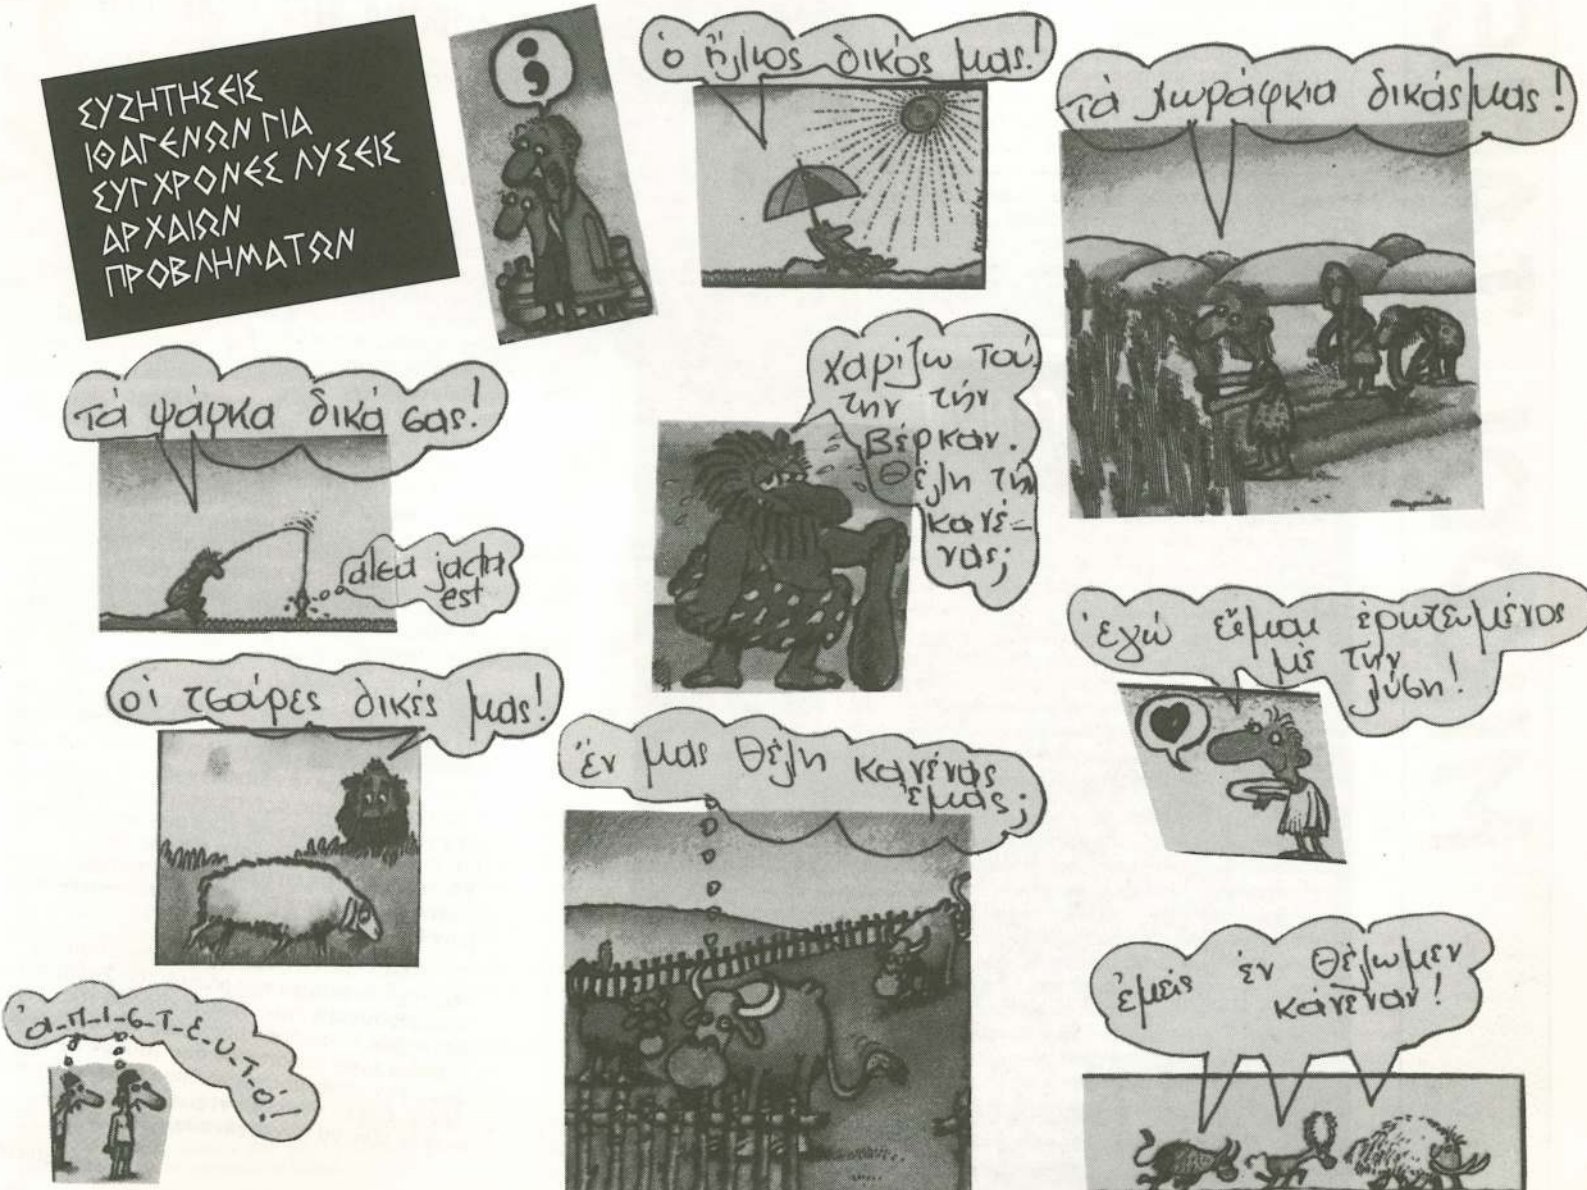 ΣΥΖΗΤΗΣΕΙΣ
ΙΘΑΓΕΝΩΝ ΓΙΑ
ΣΥΓΧΡΟΝΕΣ ΛΥΣΕΙΣ
ΑΡΧΑΙΩΝ
ΠΡΟΒΛΗΜΑΤΩΝ
;
ὁ ἥλιος δικός μας!
τὰ χωράφκια δικάς μας!
τὰ ψάρκα δικά σας!
alea jacta
est
χαρίζω τού
την τήν
Βέρκαν.
Θέλη τη
κανέ-
νας;
οἱ τσαέρες δικές μας!
ἐγώ εἶμαι ἐρωτευμένος
μὲ τήν
λύση!
ἔν μας θέλη κανένας
ἐμάς;
ἐμείς ἐν θέλωμεν
κάνεναν!
ἀ-Π-Ι-σ-Τ-Ε-υ-Τ-ό!